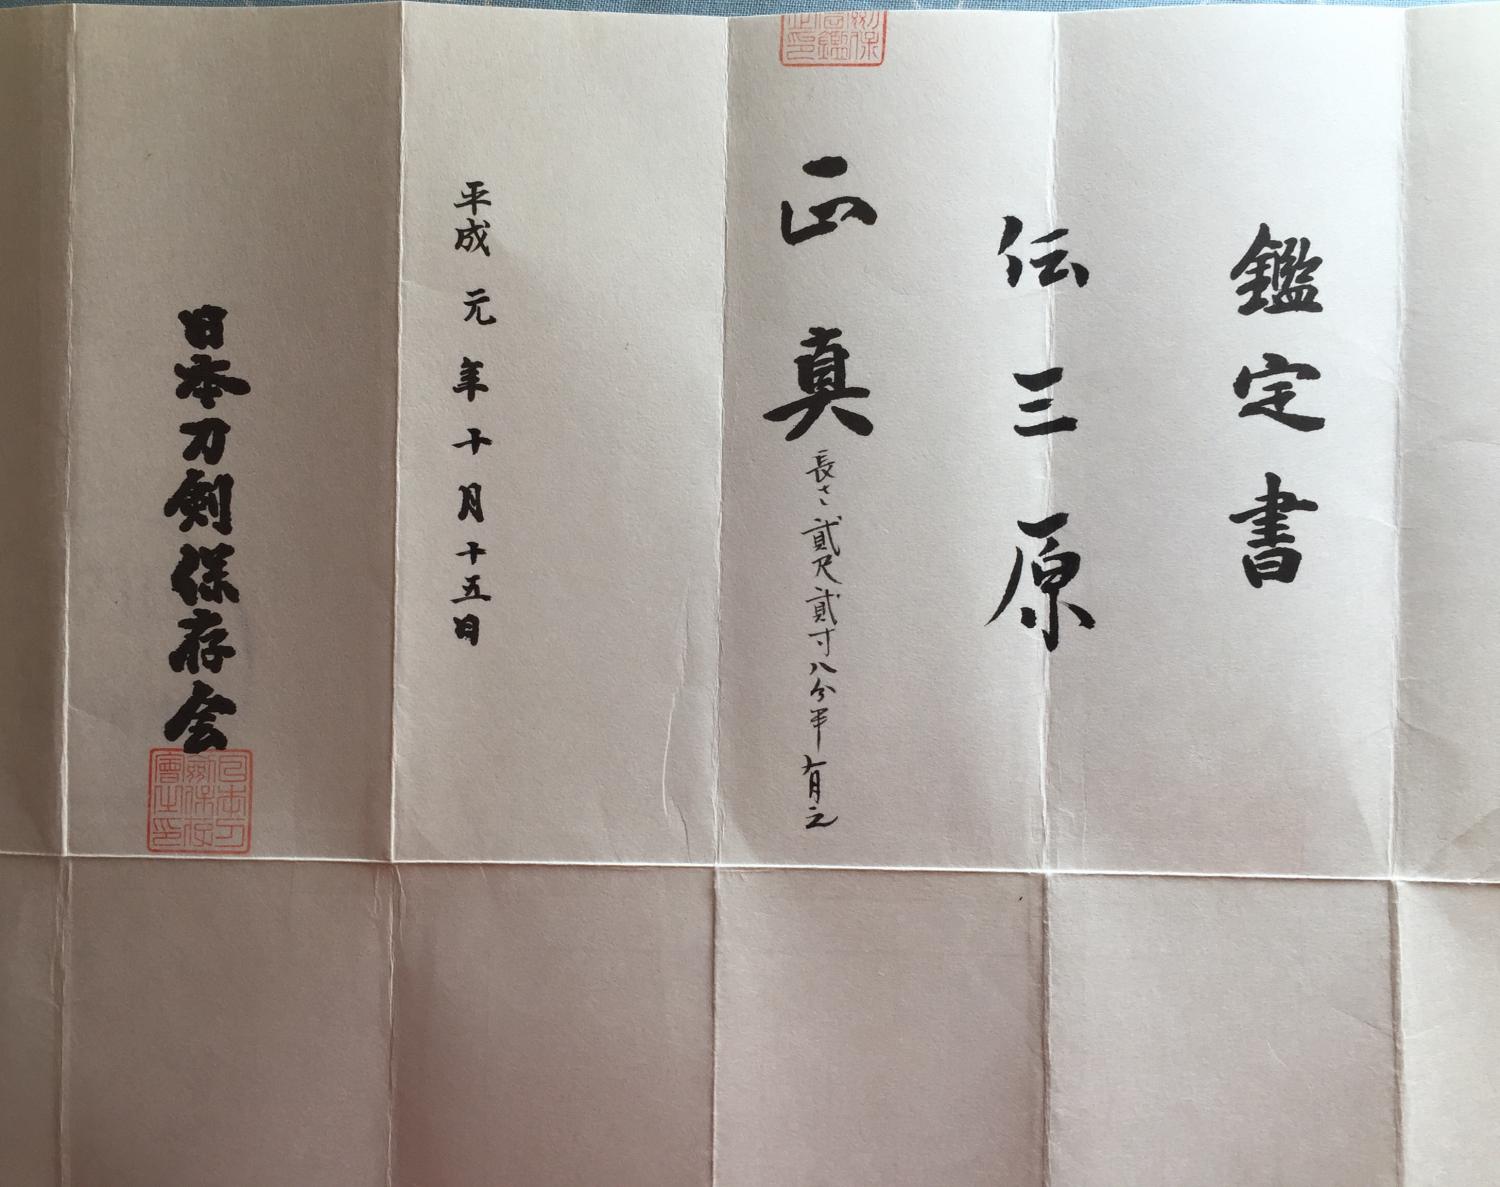 鑑定書
伝三原
正真
長さ貳尺貳寸八分半有之
平成元年十月十五日
日本刀剣保存会